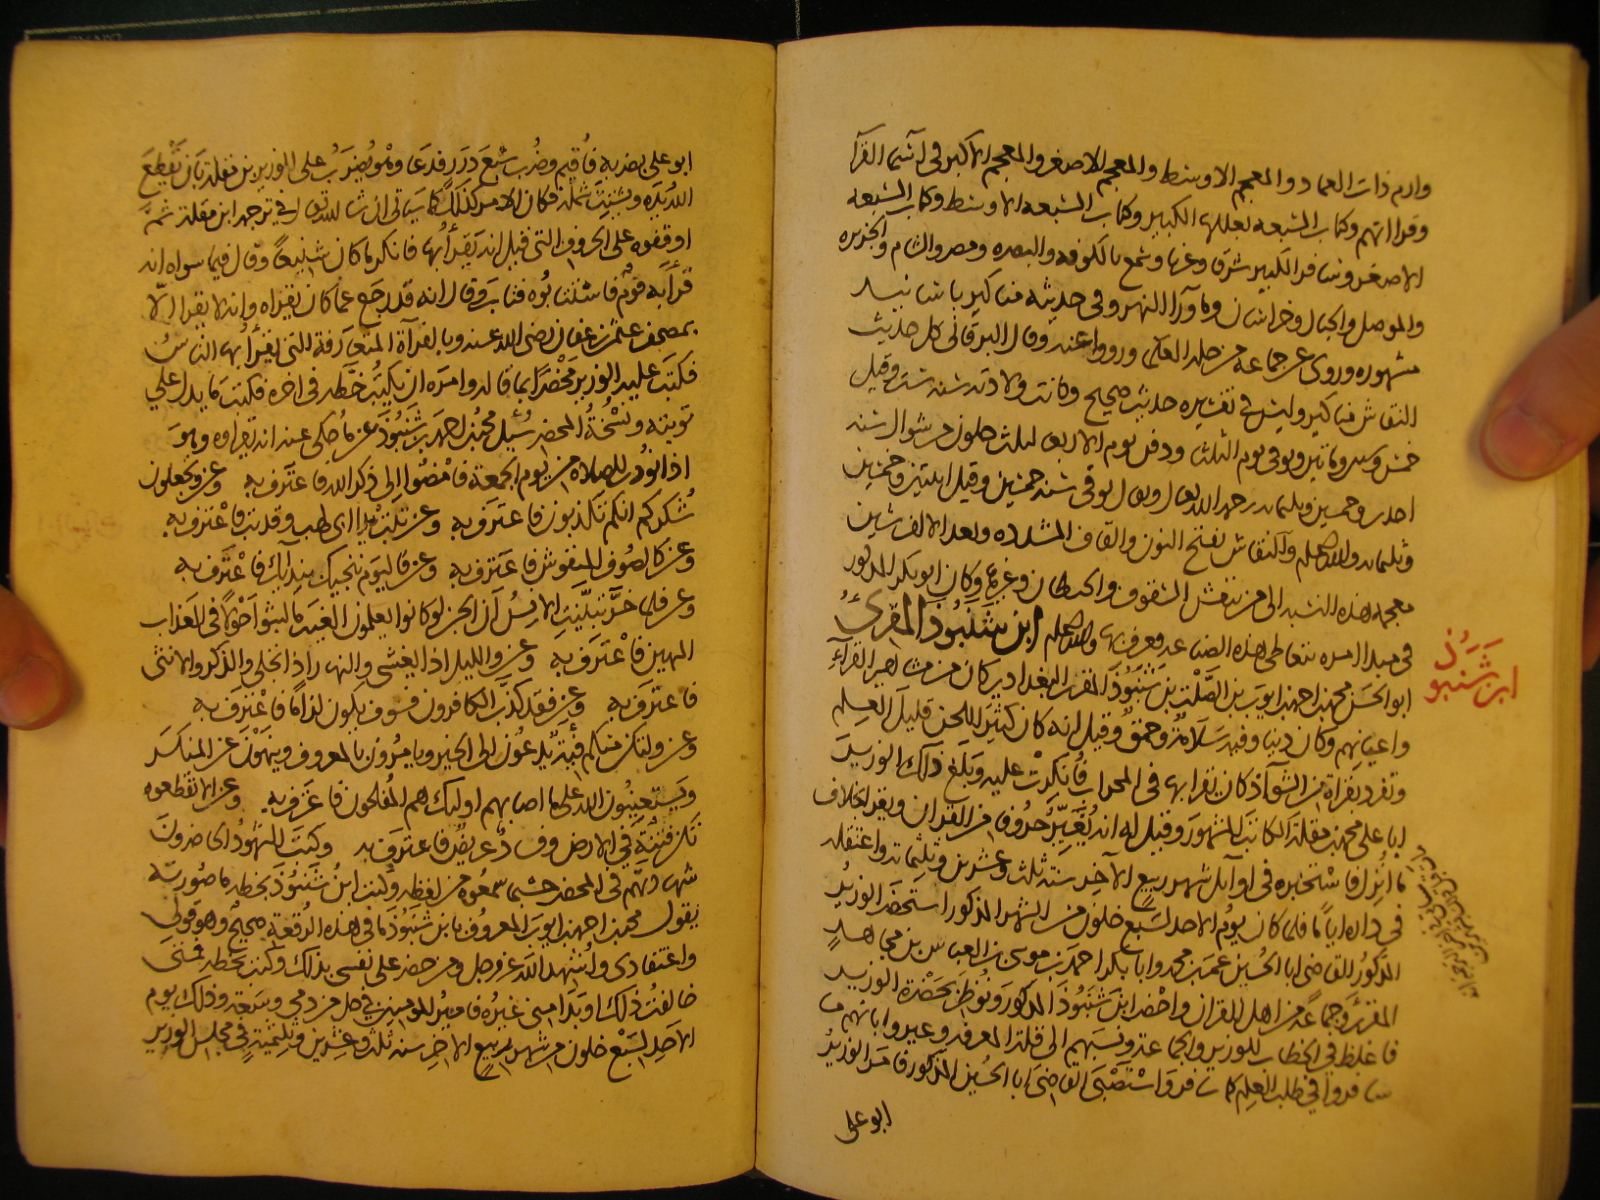 وارم ذات العماد والمعجم الاوسط والمعجم الاصغر والمعجم الاكبر في اسما القرآ
وقراآتهم وكتاب السبعة بعللها الكبير وكتاب السبعه الاوسط وكتاب السبعه
الاصغر وسافر الكثير شرقا وغربا وسمع بالكوفه والبصره ومصر والشام والجزيره
والموصل والجبال وخراسان وماورا النهر وفي حديثه مناكير باسانيد
مشهوره وروى عن جماعة من جلة العلما ورووا عنه وقال البرقاني كل حديث
النقاش مناكير وليس في تفسيره حديث صحيح وكانت ولادته سنه ست وقيل
خمس وستين وماتين وتوفي يوم الثلثا ودفن يوم الاربعا لثلث خلون من شوال سنه
احدى وخمسين وثلثمايه رحمه الله تعالى ويقال توفي سنه خمسين وقيل اثنتين وخمسين
وثلثمايه والله اعلم والنقاش بفتح النون والقاف المشدده وبعد الالف شين
معجمه هذه النسبه الى من ينقش السقوف والحيطان وغيرها وكان ابو بكر المذكور
في مبدا امره يتعاطى هذه الصناعه فعرف بها والله اعلم ابن شَنَبُوذ المقرئ
ابو الحسن محمد بن احمد بن ايوب بن الصَّلْت بن شَنَبُوذ المقرئ البغدادي كان من مشاهير القرآء
واعيانهم وكان دينا وفيه سلامة وحمق وقيل انه كان كثير اللحن قليل العلم
وتفرد بقراآت من الشوآذ كان يقرا بها في المحراب فأنكرت عليه وبلغ ذلك الوزير
ابا علي محمد بن مقلة الكاتب المشهور وقيل له انه يُغيّر حروفا من القران ويقرا بخلاف
ما انزل فاستحضره في اوآئل شهر ربيع الآخر سنة ثلث وعشرين وثلثمايه واعتقله
في داره اياما فلما كان يوم الاحد لسبع خلون من الشهر المذكور استحضر الوزير
المذكور القاضي ابا الحسين عمر بن محمد وابا بكر احمد بن موسى بن العباس بن مجاهد
المقرئ وجماعة من اهل القران واحضر ابن شنبوذ المذكور ونوظر بحضرة الوزير
فاغلظ في الخطاب للوزير والجماعة ونسبهم الى قلة المعرفة وعيرهم بانهم ما
سافروا في طلب العلم كما سافر واستصبى القاضي ابا الحسين المذكور فامر الوزير
ابو علي
ابن شَنَبُوذ
ابو علي بضربه فأقيم وضُرب سبع درر فدعا وهو يُضرب على الوزير ابن مقلة بأن تقطع
الله يده ويشتت شمله فكان الامر كذلك كما سياتي ان شا الله تعالى في ترجمه ابن مقلة ثم
اوقفوه على الحروف التي قيل انه يقرأ بها فانكر ما كان شنيعاً وقال فيما سواه انه
قرأ به قوم فاستتابُوه فتاب وقال انه قد رجع عما كان يقراه وانه لا يقرا الا
بمصحف عثمن بن عفان رضي الله عنه وبالقرآة المتعارفة التي يقرأ بها الناس
فكتب عليه الوزير محضرا بما قاله وامره ان يكتب خطه في اخره فكتب ما يدل على
توبته ونُسْخَةُ المحضر سُئِل محمد بن احمد بن شنبوذ عن ما حكى عنه انه يقراه وهو
اذا نودي للصلاه من يوم الجمعة فامضُوا الى ذكر الله فاعترف به وعن وتجعلون
شُكركم انكم تكذبون فاعترف به وعن تبّت يدا ابي لهب وقد تبّ فاعترف به
وعن كالصُوف المنقوش فاعترف به وعن فاليوم ننجيك ببدنك فاعترف به
وعن فلما خرّ تبيّنت الانس ان الجن لو كانوا يعلمون الغيب ما لبثوا حولا في العذاب
المهين فاعترف به وعن والليل اذا يغشى والنهار اذا تجلى والذكر والانثى
فاعترف به وعن فقد كذّب الكافرون فسوف يكون لزاماً فاعترف به
وعن ولتكن منكم فئة يدعُون الى الخير ويامرون بالمعروف وينهون عن المنكر
ويستعينون الله على ما اصابهم اوليك هم المفلحون فاعترف به وعن الا تفعلوه
تكن فتنة في الارض وفساد عريض فاعترف به وكتب الشهود الحاضرون
شهادتهم في المحضر حسبما سمعوه من لفظه وكتب ابن شنبوذ بخطه ما صورته
يقول محمد بن احمد بن ايوب المعروف بابن شنبوذ ما في هذه الرقعة صحيح وهو قولي
واعتقادي واشهد الله عز وجل ومن حضر على نفسي بذلك وكتب بخطه فمتى
خالفت ذلك او بدا مني غيره فامير المومنين في حل من دمي وسعة وذلك يوم
الاحد لسبع خلون من شهر ربيع الاخر سنه ثلث وعشرين وثلثمية في مجلس الوزير